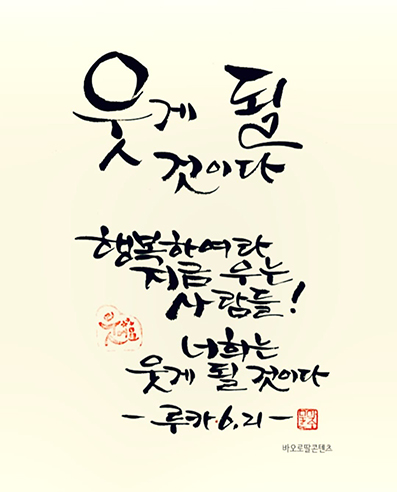 웃게 될
것이다
행복하여라
지금 우는
사람들!
너희는
웃게 될 것이다
- 루카.6,21 -
바오로딸콘텐츠